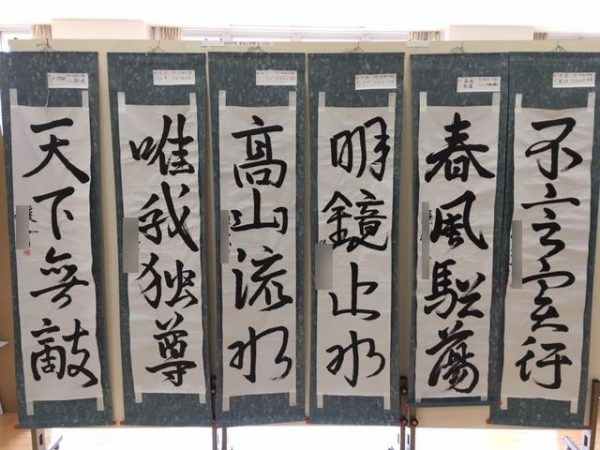 不言実行
春風駘蕩
明鏡止水
高山流水
唯我独尊
天下無敵